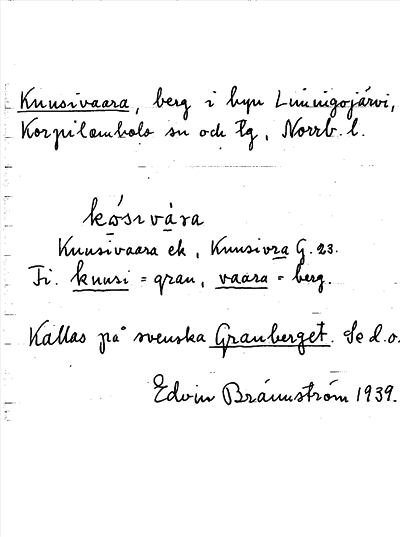 Kuusivaara, berg i byn Limingojärvi,
Korpilombolo sn och tg, Norrb. l.
kω̄́sı vā̀ra
Kuusivaara ek, Kuusivra G. 23.
Fi. kuusi = gran, vaara = berg.
Kallas på svenska Granberget. Se d.o.
Edvin Brännström 1939.